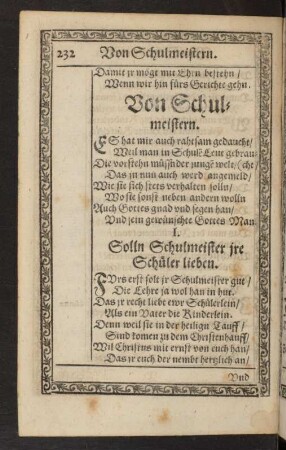 232 Von Schulmeistern.
Damit jr mögt mit Ehrn bestehn /
Wenn wir hin fürs Gerichte gehn.
Von Schul-
meistern.
ES hat mir auch rahtsam gedaucht /
Weil man in Schuln Leut gebrau-
Die vorstehn müssn der jungē welt / (cht /
Das jn nun auch werd angemeld /
Wie sie sich stets verhalten solln /
Wo sie sonst neben andern wolln
Auch Gottes gnad vnd segen han /
Vnd sein gewünschte Gottes Man
I.
Solln Schulmeister jre
Schüler lieben.
FVrs erst solt jr Schulmeister gut /
Die Lehre ja wol han in hut.
Das jr recht liebt ewr Schülerlein /
Als ein Vater die Kinderlein.
Denn weil sie in der heilign Tauff /
Sind komen zu dem Christenhauff /
Wil Christus mit ernst von euch han /
Das jr euch der nembt hertzlich an /
Vnd